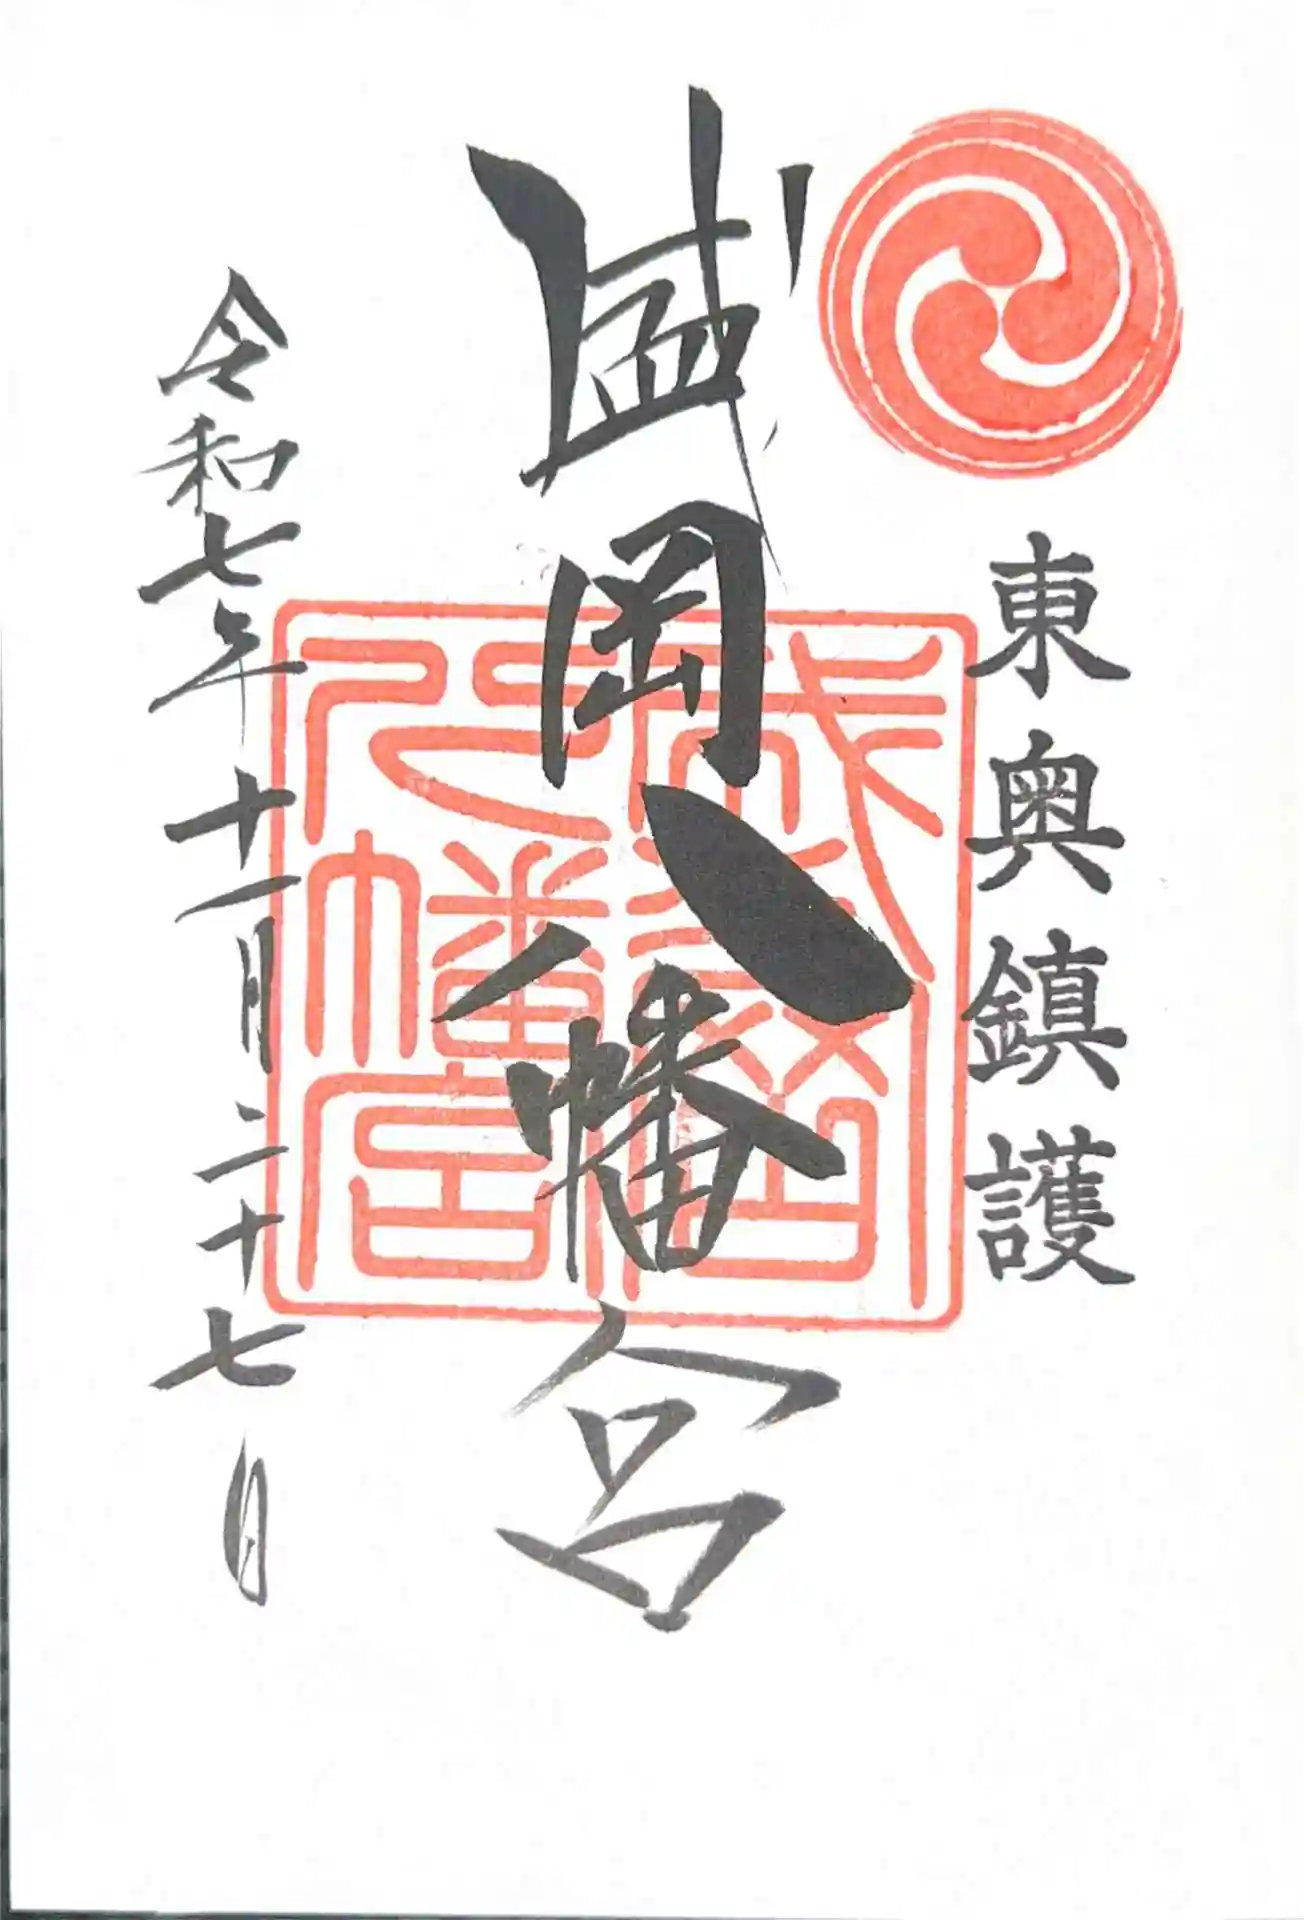 東奥鎮護
盛岡八幡宮
盛岡八幡宮
令和七年十一月二十七日